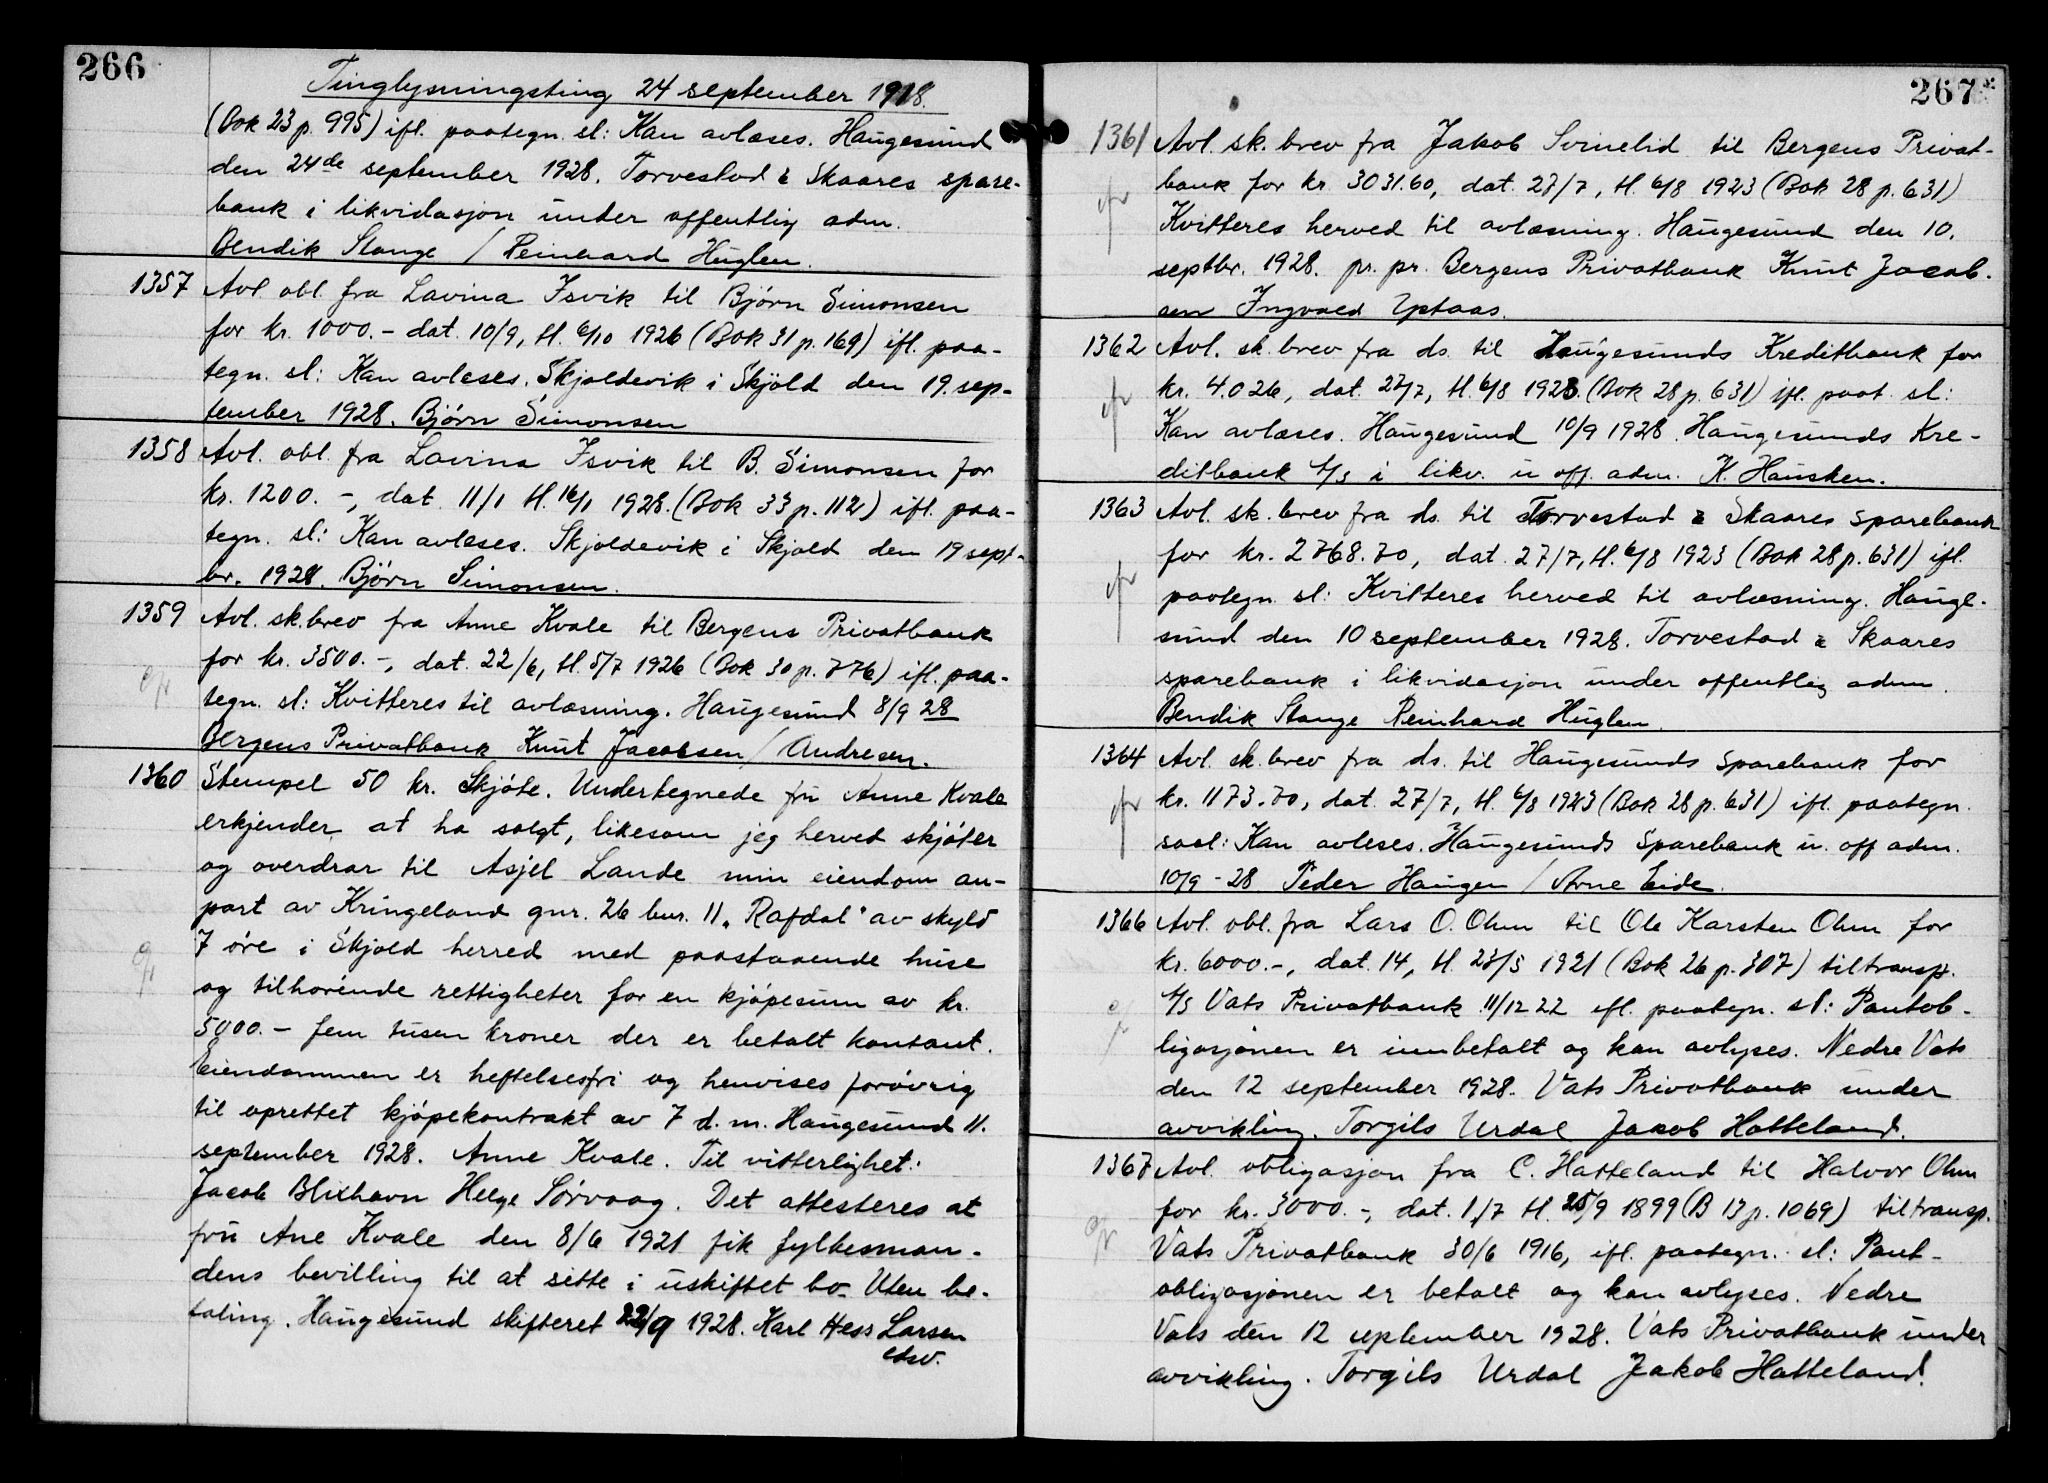 266
Tinglysningsting 24 september 1918.
(Bok 23 p. 995) ifl. paategn. sl: Kan avlæses. Haugesund
den 24de september 1928. Torvestad & Skaares spare-
bank i likvidasjon under offentlig adm.
Bendik Stange / Reinhard Huglen.
1357 Avl obl. fra Lavina Isvik til Bjørn Simonsen
for kr. 1000.- dat. 10/9, tl. 6/10 1926 (Bok 31 p. 169) ifl. paa-
tegn. sl: Kan avlæses. Skjoldevik i Skjold den 19. sep-
tember 1928. Bjørn Simonsen
1358 Avl. obl. fra Lavina Isvik til B. Simonsen for
kr. 1200.-, dat. 11/1 tl. 16/1 1928. (Bok 33 p. 112) ifl. paa-
tegn. sl: Kan avlæses. Skjoldevik i Skjold den 19 sept-
br. 1928. Bjørn Simonsen.
1359 Avl. sk.brev fra Anne Kvale til Bergens Privatbank
for kr. 3500.-, dat. 22/6, tl. 5/7 1926 (Bok 30 p. 776) ifl. paa-
tegn. sl: Kvitteres til avlæsning. Haugesund 8/9 28
Bergens Privatbank Knut Jacobsen / Andresen.
1360 Stempel 50 kr. Skjøte. Undertegnede fru Anne Kvale
erkjender at ha solgt, likesom jeg herved skjøter
og overdrar til Asjel Lande min eiendom an-
part av Kringeland gnr. 26 bnr. 11 „Rafdal" av skyld
7 øre i Skjold herred med paastaaende huse
og tilhørende rettigheter for en kjøpesum av kr.
5000.- fem tusen kroner der er betalt kontant.
Eiendommen er heftelsesfri og henvises forøvrig
til oprettet kjøpekontrakt av 7 d.m. Haugesund 11.
september 1928. Anne Kvale. Til vitterlighet:
Jacob Blixhavn Helge Sørvaag. Det attesteres at
fru Ane Kvale den 8/6 1921 fik fylkesman-
dens bevilling til at sitte i uskiftet bo. Uten be-
taling. Haugesund skifteret 22/9 1928. Karl Hess Larsen
267
1361 Avl. sk. brev fra Jakob Svinelid til Bergens Privat-
bank for kr. 3031.60, dat. 27/7, tl. 6/8 1923 (Bok 28 p. 631)
Kvitteres herved til avlæsning. Haugesund den 10.
septbr. 1928. pr. pr. Bergens Privatbank Knut Jacob-
sen Ingvald Optaas.
1362 Avl. sk. brev fra ds. til Haugesunds Kreditbank for
kr. 4.026, dat. 27/7, tl. 6/8 1923. (Bok 28 p. 631) ifl. paat. sl:
Kan avlæses. Haugesund 10/9 1928. Haugesunds Kre-
ditbank A/S i likv. u off. adm. K. Hausken.
1363 Avl. sk. brev fra ds. til Torvestad & Skaares Sparebank
for kr. 2768.70, dat. 27/7, tl. 6/8 1923 (Bok 28 p. 631) ifl.
paategn. sl: Kvitteres herved til avlæsning. Hauge-
sund den 10 september 1928. Torvestad & Skaares
sparebank i likvidasjon under offentlig adm.
Bendik Stange Reinhard Huglen.
1364 Avl. sk. brev fra ds. til Haugesunds Sparebank for
kr. 1173.70, dat. 27/7, tl. 6/8 1923 (Bok 28 p. 631) ifl. paategn.
saal: Kan avleses. Haugesunds Sparebank u. off adm.
10/9 - 28 Peder Haugen / Arne Eide.
1366 Avl. obl. fra Lars O. Ohm til Ole Karsten Ohm for
kr. 6000.-, dat. 14, tl. 23/5 1921 (Bok 26 p. 307) tiltransp.
A/S Vats Privatbank 11/12 22 ifl. paategn. sl: Pantob-
ligasjonen er innbetalt og kan avlyses. Nedre Vats
den 12 september 1928. Vats Privatbank under
avvikling. Torgils Urdal Jakob Hatteland.
1367 Avl. obligasjon fra C. Hatteland til Halvor Ohm
for kr. 3000.-, dat. 1/7 tl. 25/9 1899 (B 13 p. 1069) tiltransp.
Vats Privatbank 30/6 1916, ifl. paategn. sl: Pant-
obligasjonen er betalt og kan avlyses. Nedre
Vats den 12 september 1928. Vats Privatbank under
avvikling. Torgils Urdal Jakob Hatteland.